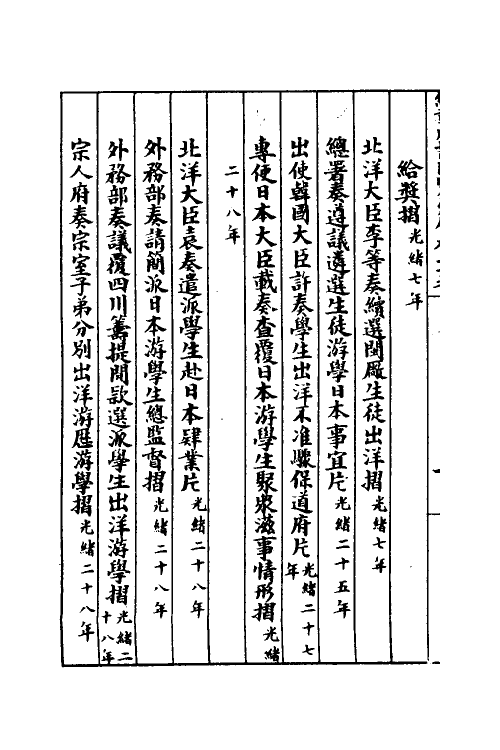 給獎摺光緒七年
北洋大臣李等奏續選閩厰生徒出洋摺光緒七年
總署奏遵議遴選生徒游學日本事宜片光緒二十五年
出使韓國大臣許奏學生出洋不准驟保道府片光緒二十七年
專使日本大臣載奏查覆日本游學生聚衆滋事情形摺光緒
二十八年
北洋大臣袁奏遣派學生赴日本肄業片光緒二十八年
外務部奏請簡派日本游學生總監督摺光緒二十八年
外務部奏議覆四川籌提閒款選派學生出洋游學摺光緒二十八年
宗人府奏宗室子弟分別出洋游歷游學摺光緒二十八年